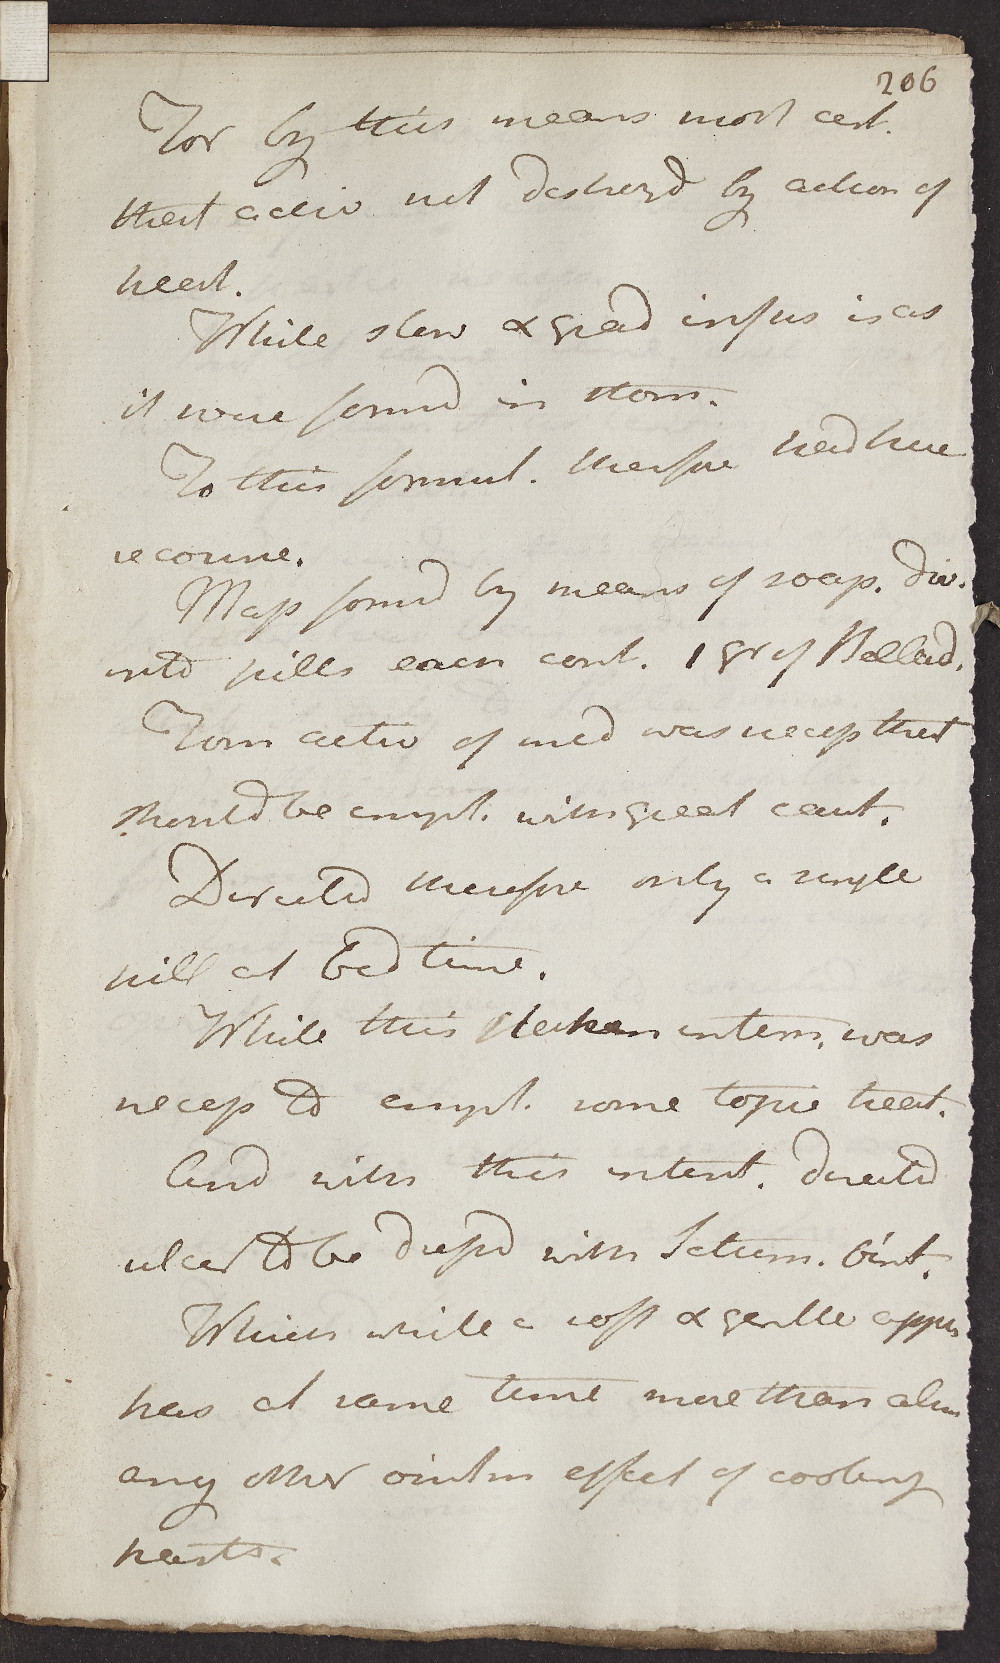 206
For by this means most cert.
that activ not destroyd by action of
heat.
While slow & grad infus is as
it were formd in stom.
To this formul. therefore had here
recourse.
Mass formd by means of soap. div.
into pills each cont. 1 gr of Bellad.
From activ of med was necess that
should be empl. with great caut.
Directed therefore only a single
pill at bed time.
While this taken intern. was
necess to empl. some topic treat.
And with this intent. directd
ulcer to be dressd with Saturn. Oint.
Which while a soft & gentle appn
has at same time more than alm
any other ointm effect of cooling
parts.